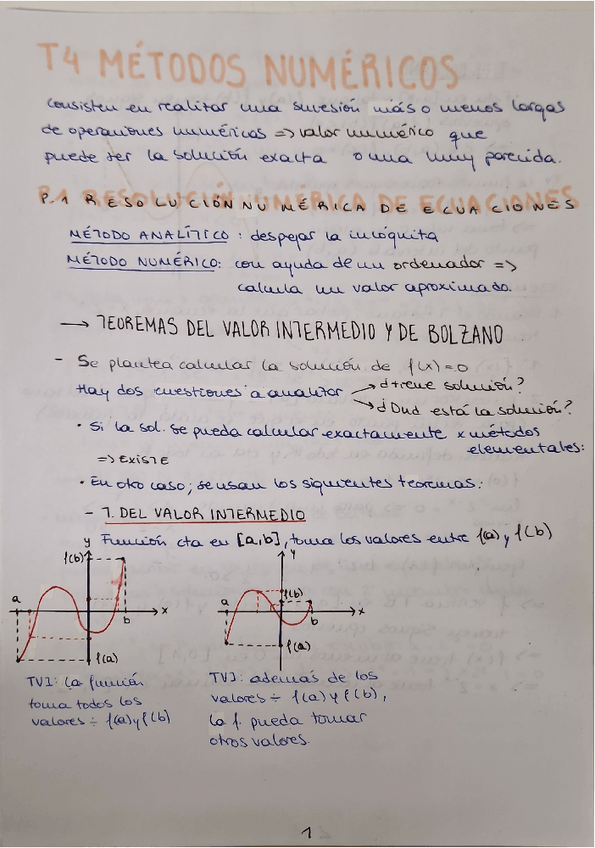 T4 MÉTODOS NUMÉRICOS
Consisten en realizar una sucesión más o menos largas
de operaciones numéricas => valor numérico que
puede ser la solución exacta o una muy parecida.
P.1 RESOLUCIÓN NUMÉRICA DE ECUACIONES
MÉTODO ANALÍTICO: despejar la incógnita
MÉTODO NUMÉRICO: con ayuda de un ordenador =>
calcula un valor aproximado.
→ TEOREMAS DEL VALOR INTERMEDIO Y DE BOLZANO
- Se plantea calcular la solución de f(x)=0
Hay dos cuestiones a analizar → ¿tiene solución?
→ ¿Dnd está la solución?
• Si la sol. se pueda calcular exactamente x métodos
elementales:
=> EXISTE
• En otro caso; se usan los siguientes teoremas:
- T. DEL VALOR INTERMEDIO
Función cta en [a,b], toma los valores entre f(a) y f(b)
y
f(b)
a
b
x
f(a)
y
a
f(b)
b
x
f(a)
TVI: la función
toma todos los
valores ÷ f(a) y f(b)
TVI: además de los
valores ÷ f(a) y f(b),
la f. pueda tomar
otros valores.
1